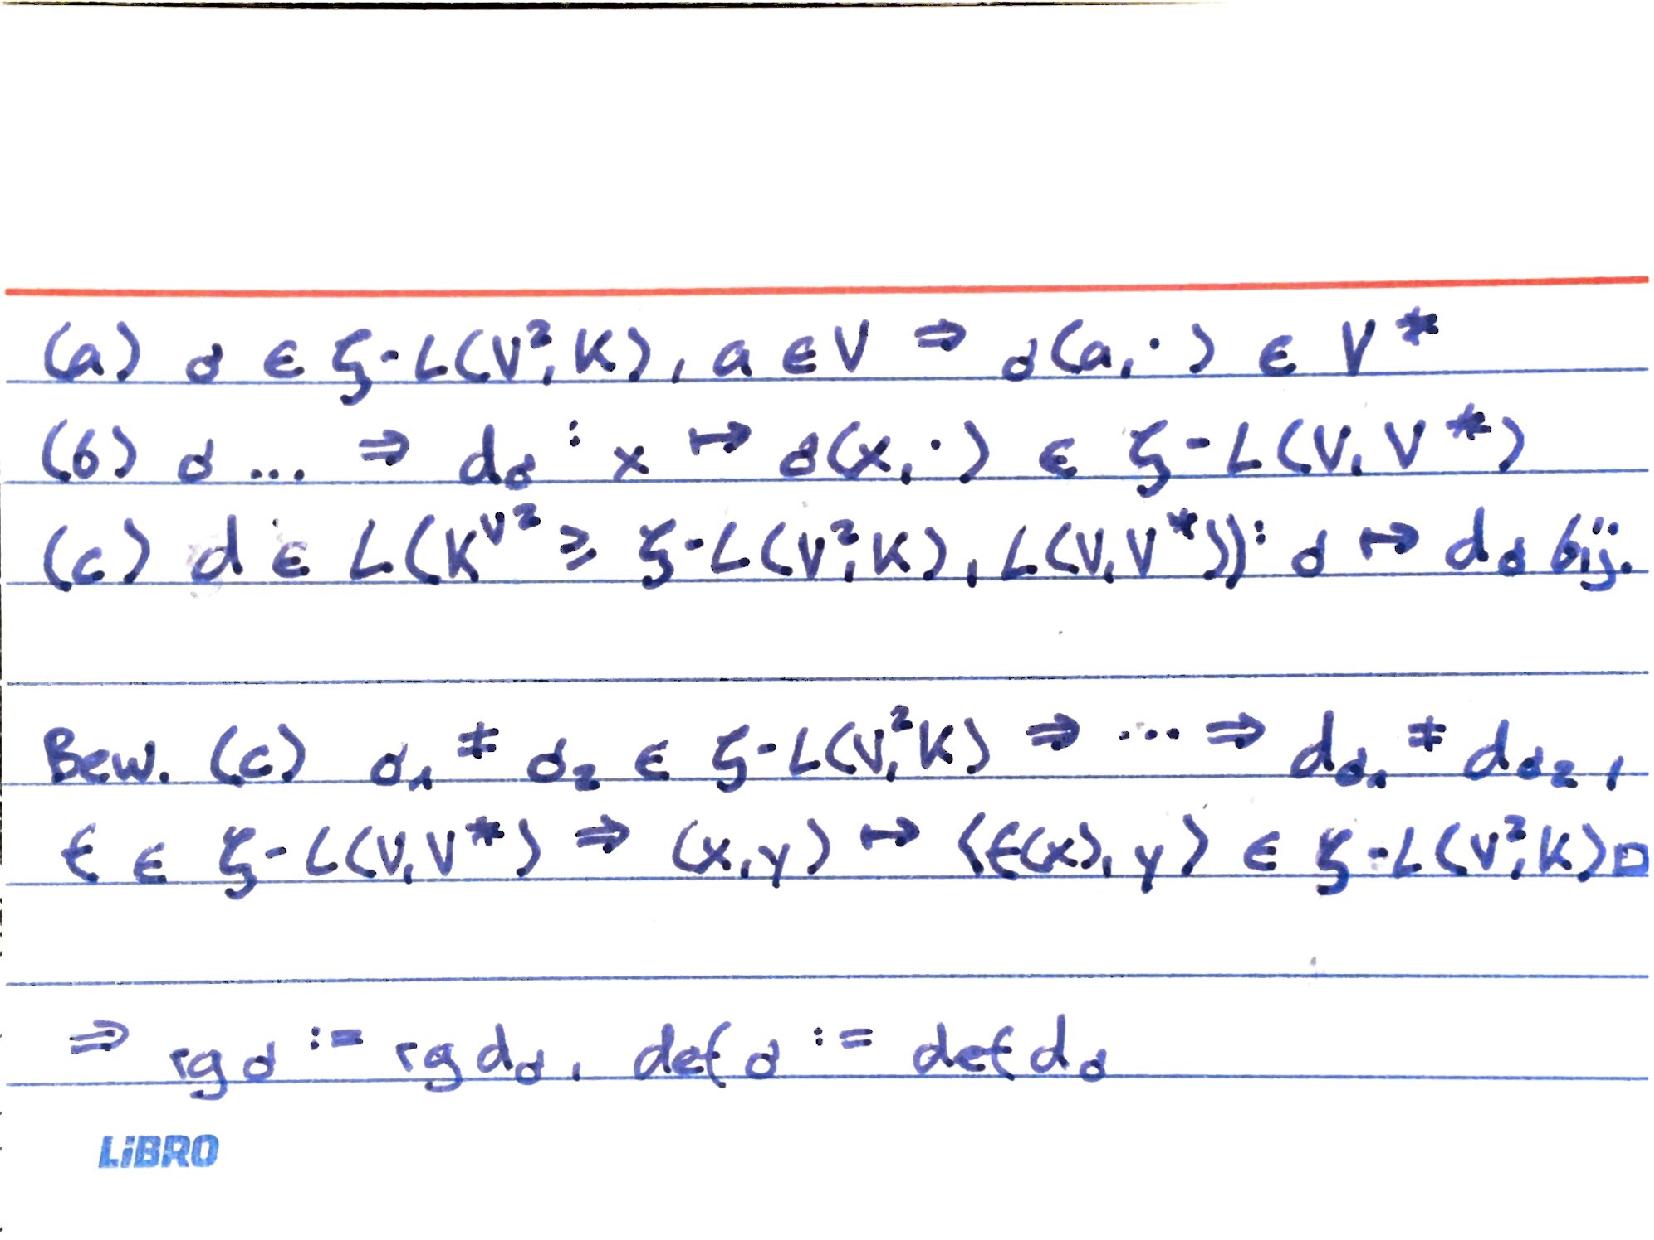 (a) σ ∈ ζ-L(V²,K), a ∈ V ⇒ σ(a,·) ∈ V*
(b) σ ... ⇒ d_σ : x ↦ σ(x,·) ∈ ζ-L(V,V*)
(c) d ∈ L(K^{V²} ≥ ζ-L(V²,K), L(V,V*)): σ ↦ d_σ bij.
Bew. (c) σ₁ ≠ σ₂ ∈ ζ-L(V²,K) ⇒ ... ⇒ d_σ₁ ≠ d_σ₂,
f ∈ ζ-L(V,V*) ⇒ (x,y) ↦ ⟨f(x),y⟩ ∈ ζ-L(V²,K) □
⇒ rg σ := rg d_σ, def σ := def d_σ
LiBRO